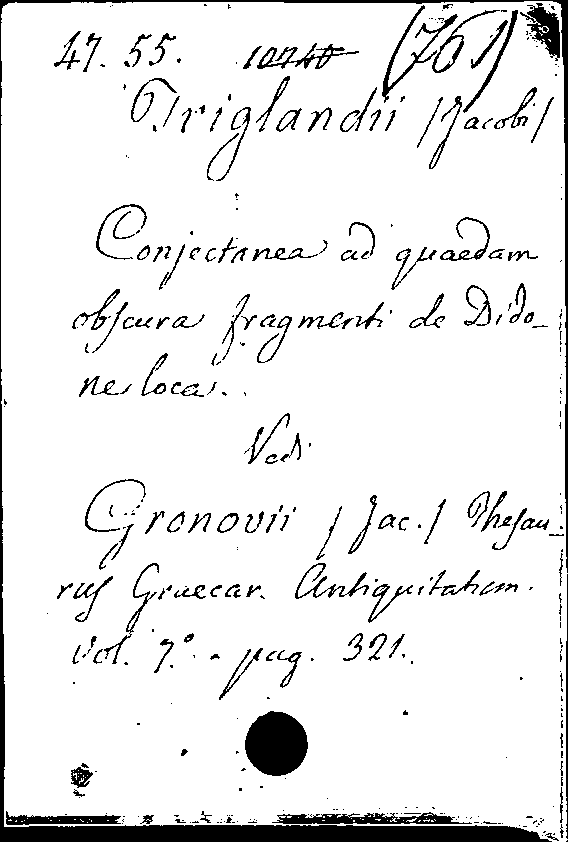 47. 55. 10740 (761)
Triglandii /Jacobi/
Conjectanea ad quaedam
obscura fragmenti de Dido_
ne loca.
Vedi
Gronovii / Jac. / Thesau_
rus Graecar. Antiquitatum.
vol. 7.º - pag. 321.